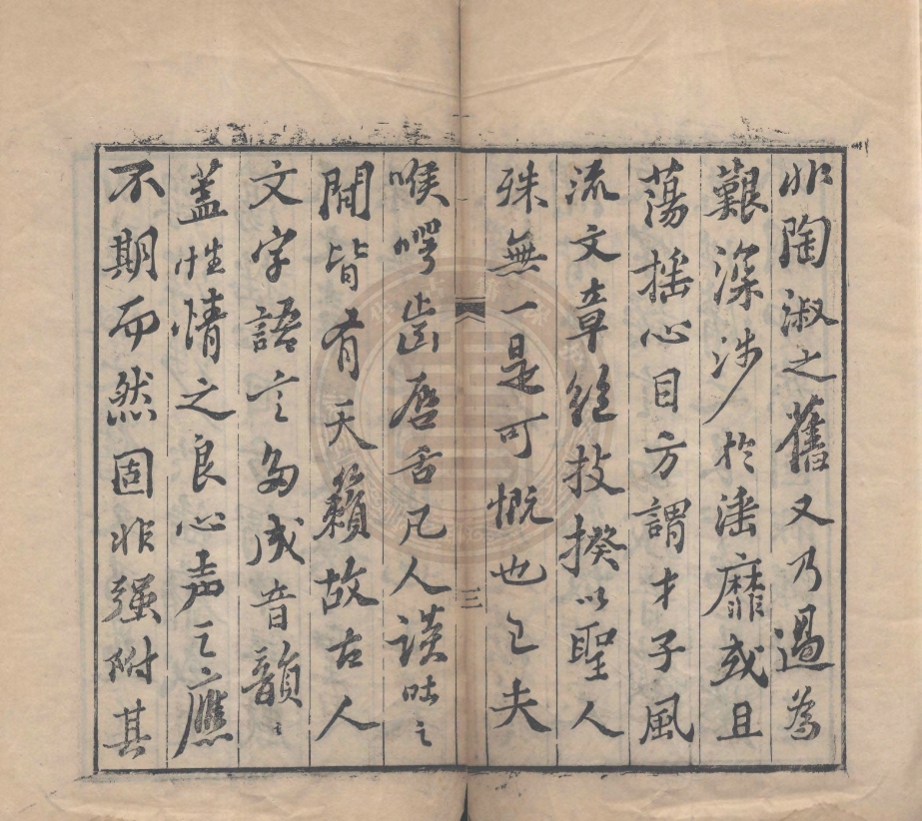 非陶淑之舊又乃過為
艱深涉於淫靡或且
蕩搖心目方謂才子風
流文章絕技揆以聖人
殊無一是可慨也已夫
三
喉腭齒唇舌凡人談吐之
間皆有天籟故古人
文字語言多成音韻韻
蓋性情之良心声之應
不期而然固非强附其